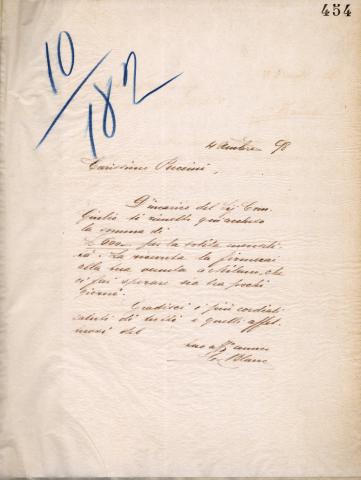 454
10/182
4 8mbre 98
Carissimo Puccini,
D'incarico del Sig. Com.
Giulio ti rimetto qui accluso
la somma di
per la solita mensili-
tà. La ricevuta la firmerai
alla tua venuta a Milano, che
ci fai sperare sia tra pochi
giorni.
Gradisci i più cordiali
saluti di tutti e quelli affet-
tuosi del
tuo aff. amico
Blanc